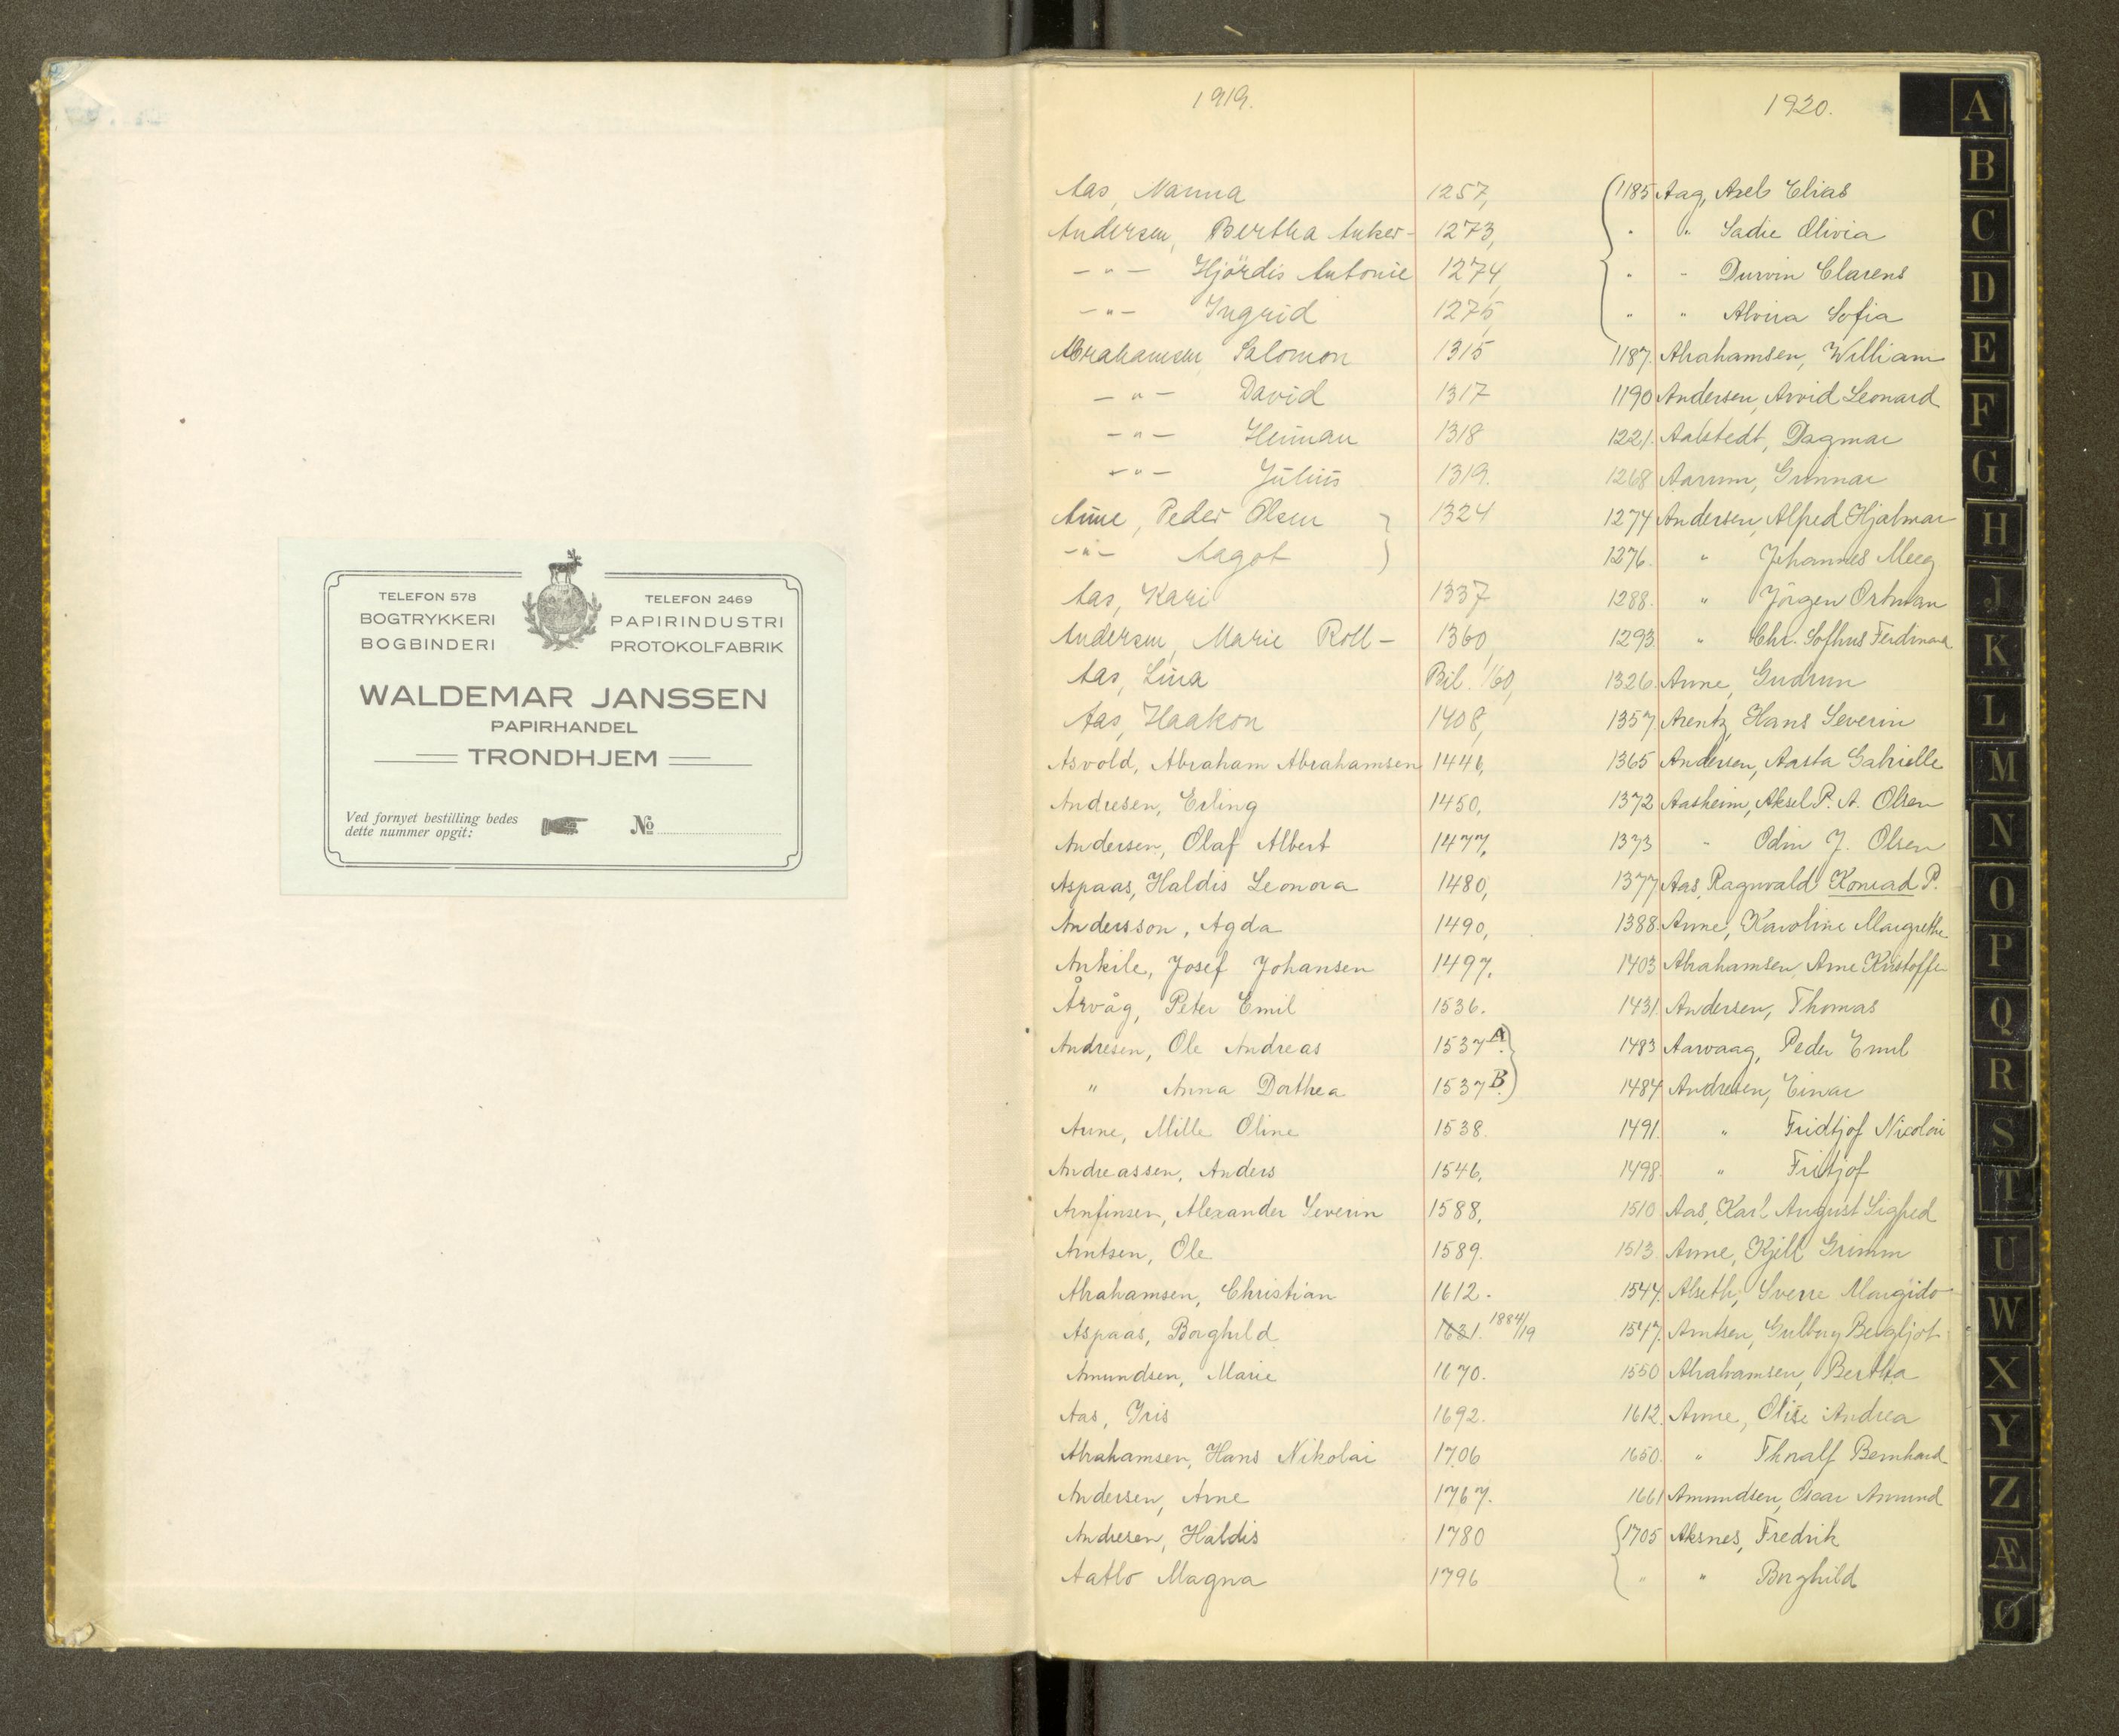 TELEFON 578
BOGTRYKKERI
BOGBINDERI
TELEFON 2469
PAPIRINDUSTRI
PROTOKOLFABRIK
WALDEMAR JANSSEN
PAPIRHANDEL
TRONDHJEM
Ved fornyet bestilling bedes
dette nummer opgit:
No
1919.
Aas, Nanna 1257,
Andersen, Bertha Anker- 1273,
-"- Hjördis Antonie 1274,
-"- Ingrid 1275,
Abrahamsen, Salomon 1315
-"- David 1317
-"- Heiman 1318
-"- Julius 1319.
Aune, Peder Olsen 1324
-"- Aagot
Aas, Kari 1337
Andersen, Marie Roll- 1360,
Aas, Lina Bil. 1/60,
Aas, Haakon 1408,
Asvold, Abraham Abrahamsen 1446,
Andresen, Erling 1450,
Andersen, Olaf Albert 1477,
Aspaas, Haldis Leonora 1480,
Andersson, Agda 1490,
Ankile, Josef Johansen 1497,
Årvåg, Peter Emil 1536.
Andresen, Ole Andreas 1537 A.
" Anna Dorthea 1537 B.
Aune, Mille Oline 1538.
Andreassen, Anders 1546.
Arnfinsen, Alexander Severin 1588,
Arntsen, Ole 1589.
Abrahamsen, Christian 1612.
Aspaas, Borghild 1631. 1884/19
Amundsen, Marie 1670.
Aas, Iris 1692.
Abrahamsen, Hans Nikolai 1706
Andersen, Arne 1767.
Andresen, Haldis 1780
Aatlo Magna 1796
1920.
1185 Aag, Axel Elias
" " Sadie Olivia
" " Durvin Clarens
" " Alvira Sofia
1187. Abrahamsen, William
1190 Andersen, Arvid Leonard
1221. Aalstedt, Dagmar
1268 Aarum, Gunnar
1274 Andersen, Alfred Hjalmar
1276. " Johannes
1288. " Jörgen Ortman
1293. " Chr. Sofhus Ferdinand
1326. Aune, Gudrun
1357. Arentz, Hans Severin
1365 Andersen, Aasta Gabrielle
1372 Aasheim, Aksel P. A. Olsen
1373 " Odin J. Olsen
1377 Aas, Ragnvald Konrad P.
1388. Aune, Karoline Margrethe
1403 Abrahamsen, Arne Kristoffer
1431. Andersen, Thomas
1483 Aarvaag, Peder Emil
1484 Andresen, Einar
1491. " Fridtjof Nicolai
1498. " Fritjof
1510 Aas, Karl August Sigfred
1513. Aune, Kjell Grimm
1544. Alseth, Sverre Margido
1547. Arntsen, Gulborg Bergljot
1550 Abrahamsen, Bertha
1612. Aune, Olise Andrea
1650. " Thoralf Bernhard
1661 Amundsen, Oscar Amund
1705 Aksnes, Fredrik
" " Borghild
A
B
C
D
E
F
G
H
J
K
L
M
N
O
P
Q
R
S
T
U
W
X
Y
Z
Æ
Ø